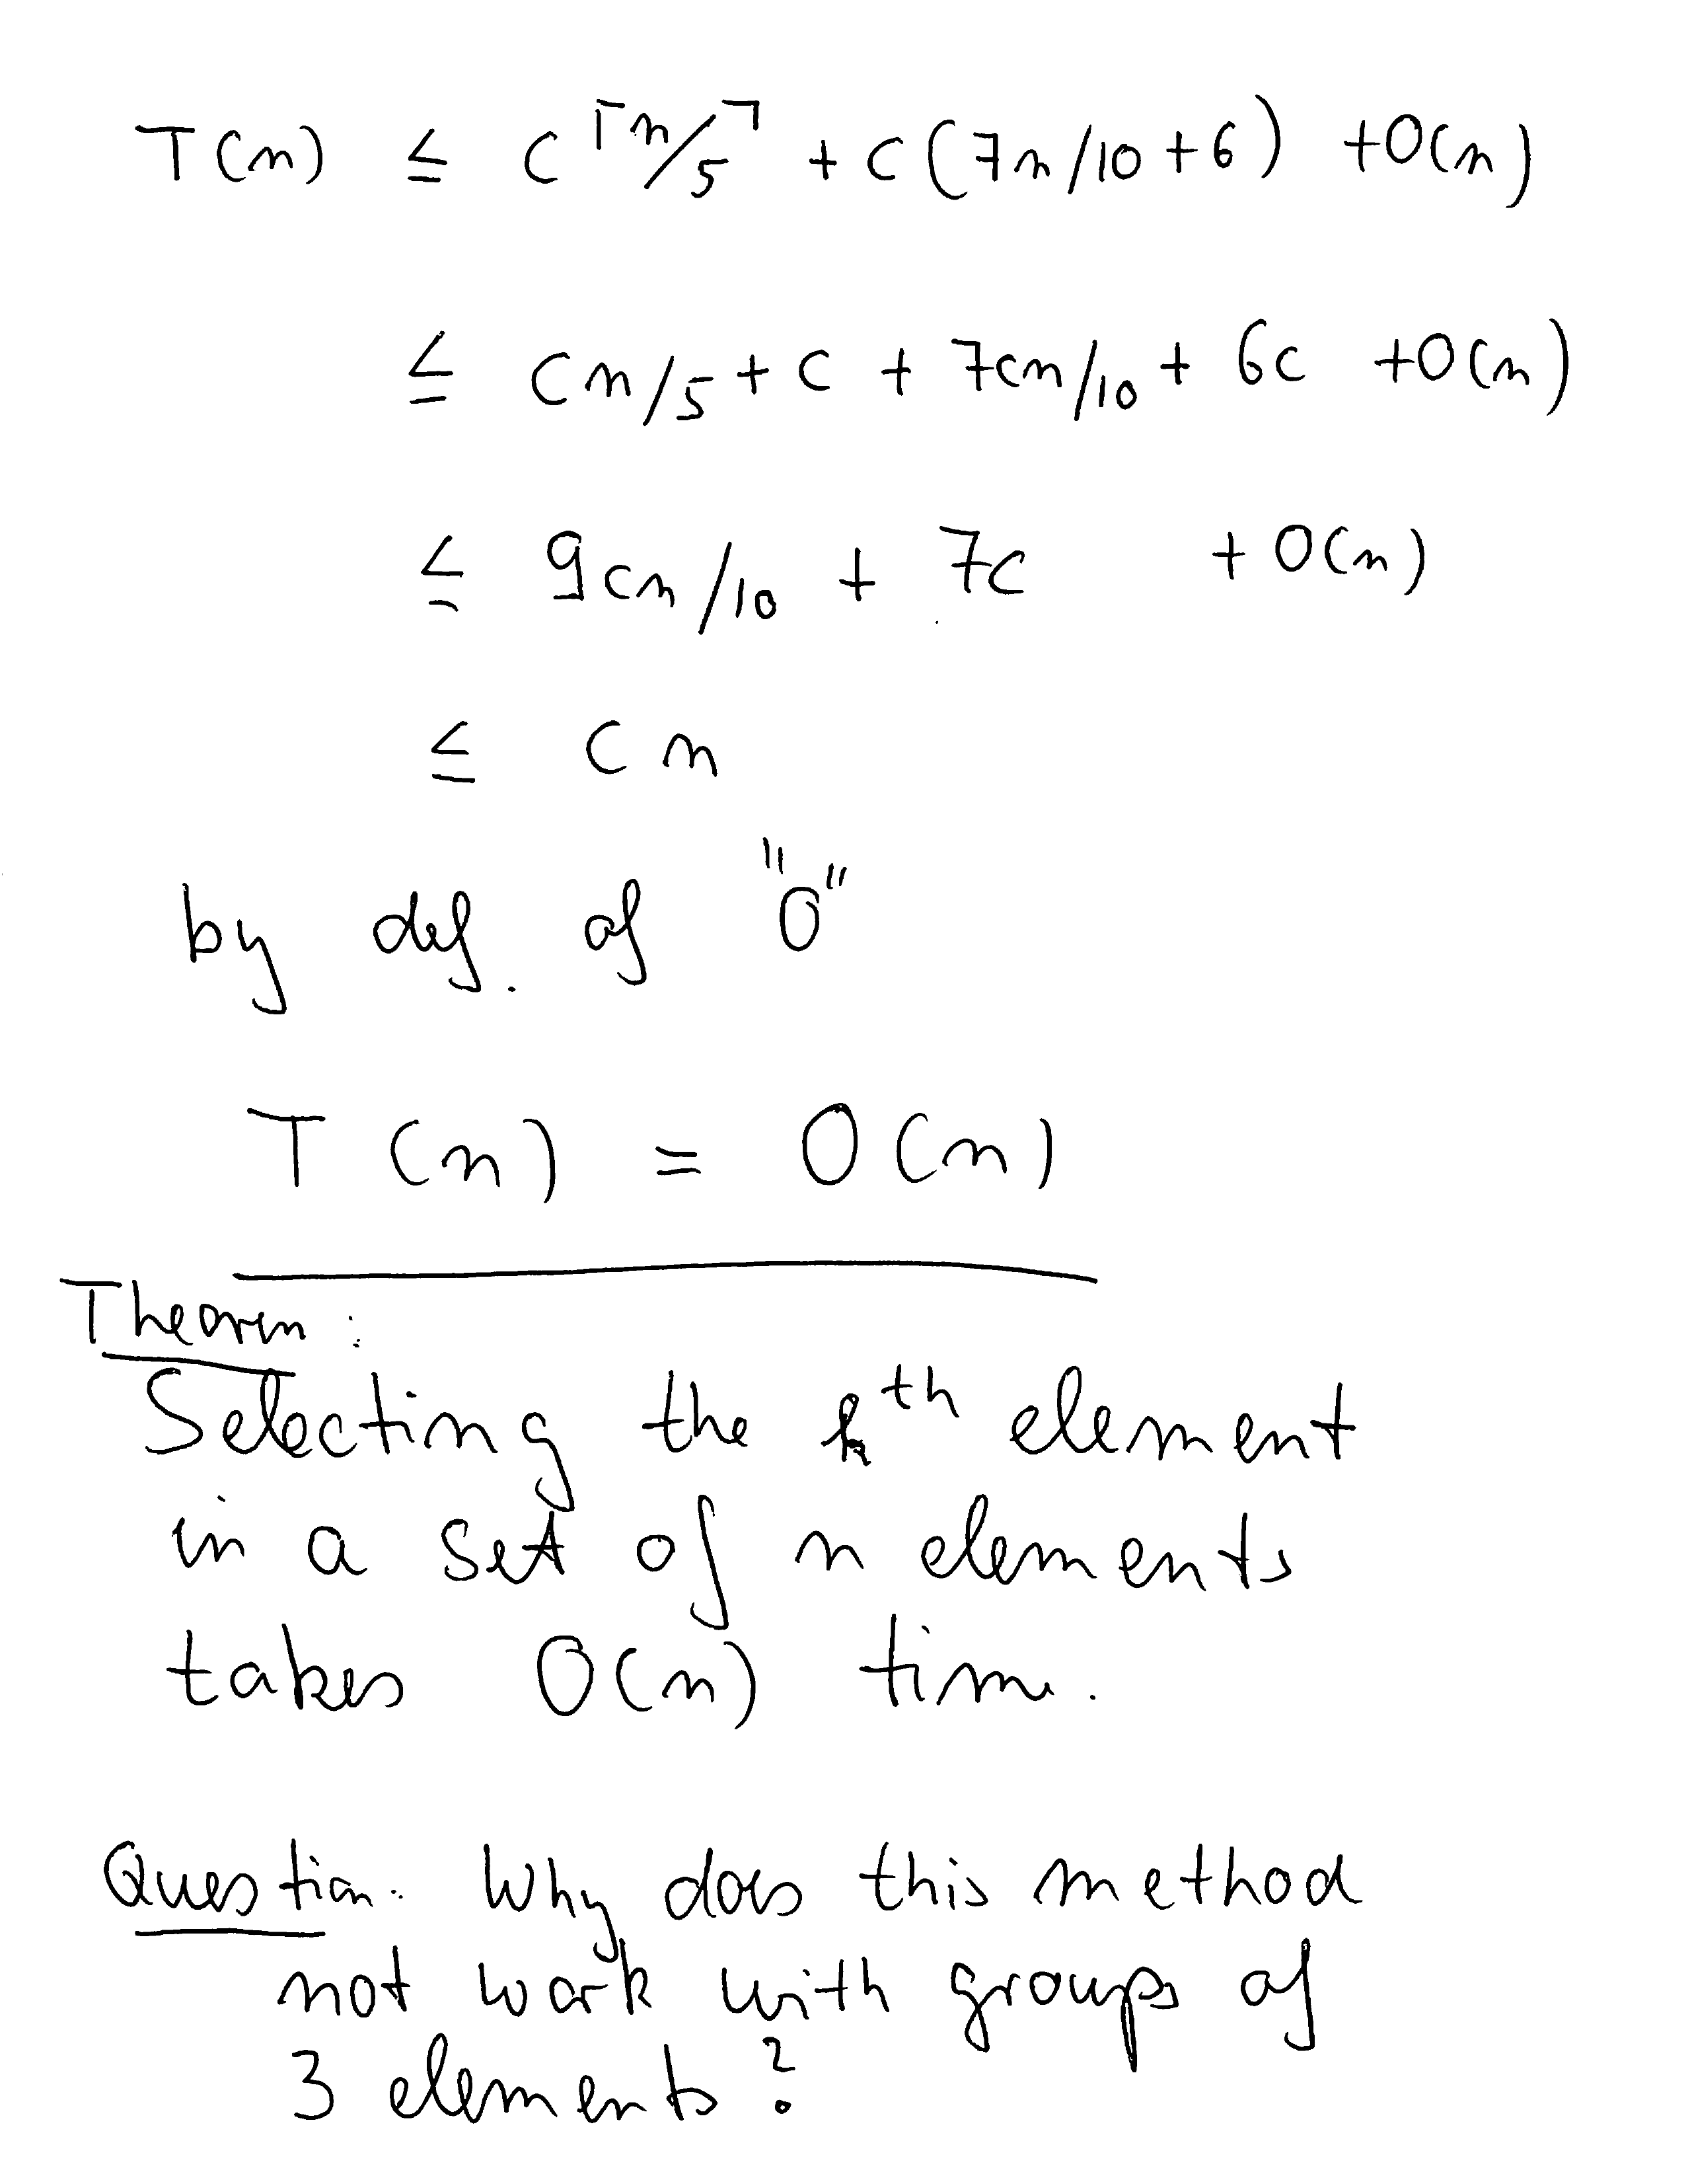 T(n) ≤ c⌈n/5⌉ + c(7n/10+6) +O(n)
≤ cn/5 + c + 7cn/10 + 6c +O(n)
≤ 9cn/10 + 7c + O(n)
≤ cn
by def. of "O"
T(n) = O(n)
Theorem:
Selecting the kth element
in a set of n elements
takes O(n) time.
Question. Why does this method
not work with groups of
3 elements?